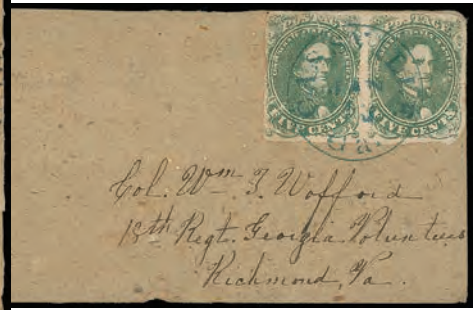 POSTAGE POSTAGE
FIVE CENTS FIVE CENTS
Ga.
Col. Wm. T. Wofford
18th Regt. Georgia Volunteers
Richmond, Va.